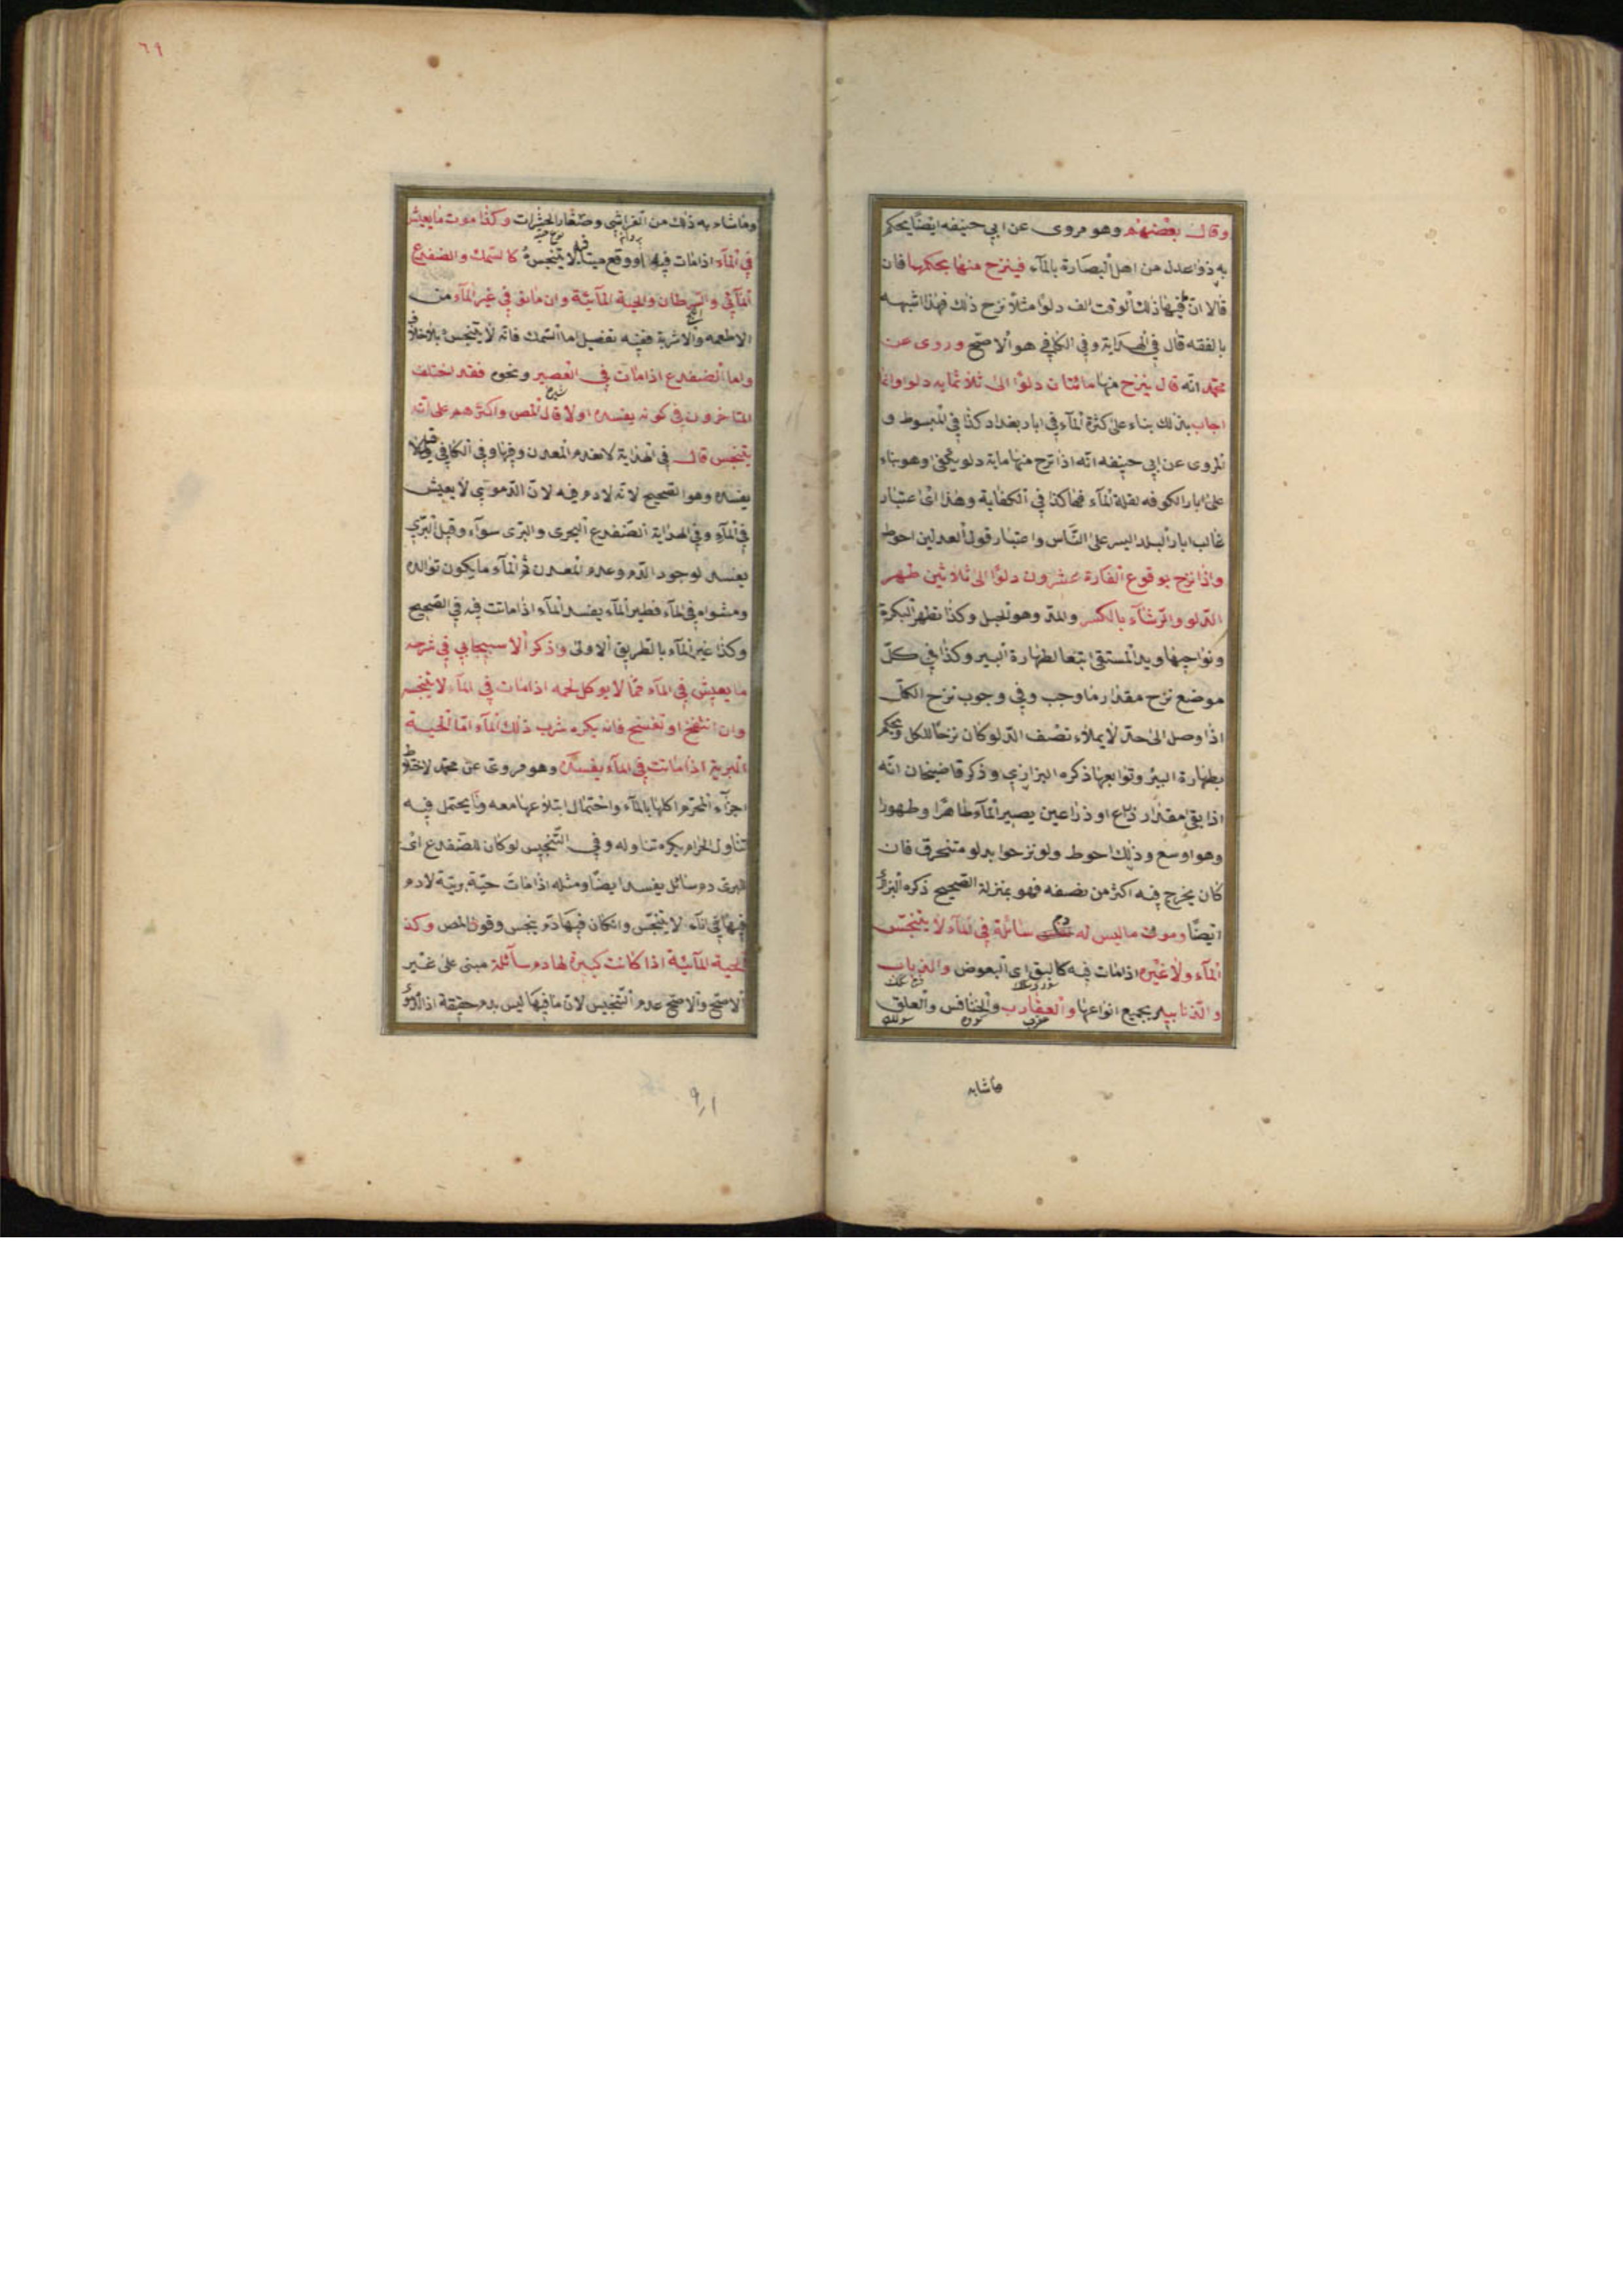 وقال بعضهم وهو مروى عن ابي حنيفه ايضًا يحكم
به ذوا عدل من اهل البصارة بالمآء فينزح منها بحكمها فان
قالا انّ فيها ذلك الوقت الف دلوًا مثلاً نزح ذلك فهذا اشبه
بالفقه قال في الهداية وفي الكافي هو الاصحّ وروى عن
محمّد انّه قال ينزح منها مائتان دلوًا الى ثلاثمايه دلو وانما
اجاب بذلك بناء على كثرة المآء في ابار بغداد كذا في المبسوط و
المروى عن ابي حنيفه انّه اذا نزح منها ماية دلو يكفى وهو بناء
على ابار الكوفه لقلة المآء فيها كذا في الكفاية وهذا اى اعتبار
غالب ابار البلد ايسر على النّاس واعتبار قول العدلين احوط
واذا نزح بوقوع الفارة عشرون دلوًا الى ثلاثين طهر
الدّلو والرّشآء بالكسر والمدّ وهو الحبل وكذا تطهر البكرة
ونواحيها ويد المستقى تبعا لطهارة البير وكذا في كلّ
موضع نزح مقدار ما وجب وفي وجوب نزح الكلّ
اذا وصل الى حدّ لا يملاء نصف الدّلو كان نزحًا للكل ويحكم
بطهارة البير وتوابعها ذكره البزازي وذكر قاضيخان انّه
اذا بقى مقدار ذراع او ذراعين يصير المآء طاهرًا وطهورا
وهو اوسع وذلك احوط ولو نزحوا بدلو متخرق فان
كان يخرج فيه اكثر من نصفه فهو بمنزلة الصحيح ذكره البزازى
ايضًا وموت ما ليس له دم سائلة في المآء لا ينجّس
المآء ولا غيره اذا مات فيه كالبق اى البعوض والذباب
والزنابير بجميع انواعها والعقارب والخنافس والعلق
ماشابه
٦٩
وماشابه ذلك من الفراش وصغار الحشرات وكذا موت ما يعيش
في المآء اذا مات فيه او وقع ميتا فيه لا ينجسه كالسمك والضفدع
المآئى والسرطان والحية المآئية وان مات في غير المآء من
الاطعمه والاشربة ففيه تفصيل اما السمك فانه لا ينجس بلاخلاف
واما الضفدع اذا مات في العصير ونحوه فقد اختلف
المتاخرون في كونه يفسده اولا قال المص واكثرهم على انّه
ينجس قال في الهداية لانعدم المعدن وفيها وفي الكافي وقيل لا
يفسده وهو الصحيح لانه لادم فيه لانّ الدّموى لا يعيش
في المآء وفي الهداية الضّفدع البحرى والبرى سوآء وقيل البرّى
يفسد لوجود الدّم وعدم المعدن ثم المآء ما يكون توالده
ومثواه في المآء فطير المآء يفسد المآء اذا ماتت فيه في الصّحيح
وكذا غير المآء بالطريق الاولى وذكر الاسبيجابي في شرحه
ما يعيش في المآء ممّا لا يوكل لحمه اذا مات في المآء لا ينجسه
وان انتفخ او تفسخ فانه يكره شرب ذلك المآء امّا الحية
البرية اذا ماتت في المآء يفسده وهو مروى عن محمد لاختلاط
اجزآء المحرّم اكلها بالمآء واحتمال ابتلاعها معه وما يحتمل فيه
تناول الحرام يكره تناوله وفي التّجنيس لو كان للضفدع اى
البرى دم سائل يفسد ايضًا ومثله اذا ماتت حيّة بريّة لادم
فيها في انآء لا ينجّس وان كان فيها دم ينجس وقول المص وكذ
الحية المآئية اذا كانت كبيرة لها دم سآئلة مبنى على غير
الاصحّ والاصحّ عدم التّنجيس لان ما فيها ليس بدم حقيقة اذا الدموى